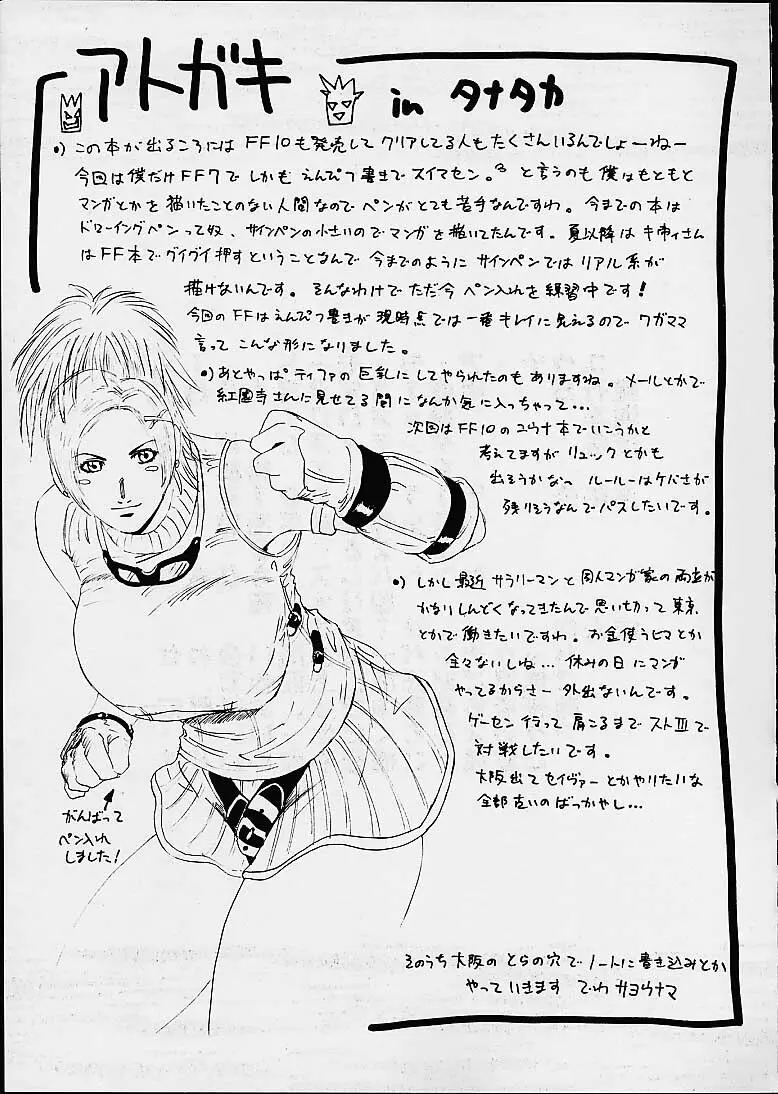 アトガキ
in タナタカ
•) この本が出るころには FF10も発売して クリアしてる人もたくさんいるんでしょーねー
今回は僕だけFF7で しかも えんぴつ書きで スイマセン。 と言うのも 僕はもともと
マンガとかを 描いたことのない人間なのでペンがとても苦手なんですわ。今までの本は
ドローイングペンって奴、サインペンの小さいのでマンガを描いてたんです。夏以降は さん
はFF本でグイグイ押すということなんで 今までのように サインペンでは リアル系が
描けないんです。そんなわけで ただ今 ペン入れを練習中です!
今回のFFはえんぴつ書きが 現時点では一番キレイに見えるので ワガママ
言って こんな形になりました。
•) あとやっぱ ティファの巨乳に してやられたのも ありますねぇ。 メールとかで
紅園寺さんに見せてる間に なんか気に入っちゃって…
次回はFF10のユウナ本でいこうかと
考えてますが リュックとかも
出そうかなっ ルールーはケバさが
残りそうなんで パスしたいです。
•) しかし最近 サラリーマンと同人マンガ家の両立が
かなりしんどくなってきたんで 思い切って 東京
とかで働きたいですわ。お金使うヒマとか
全々ないしね… 休みの日にマンガ
やってるからさー 外出ないんです。
ゲーセン 行って 肩こるまで ストⅢで
対戦したいです。
大阪出て セイヴァーとかやりたいな
全部古いのばっかやし…
がんばって
ペン入れ
しました!
そのうち大阪の とらの穴で ノートに書き込みとか
やって いきます でわ サヨウナマ